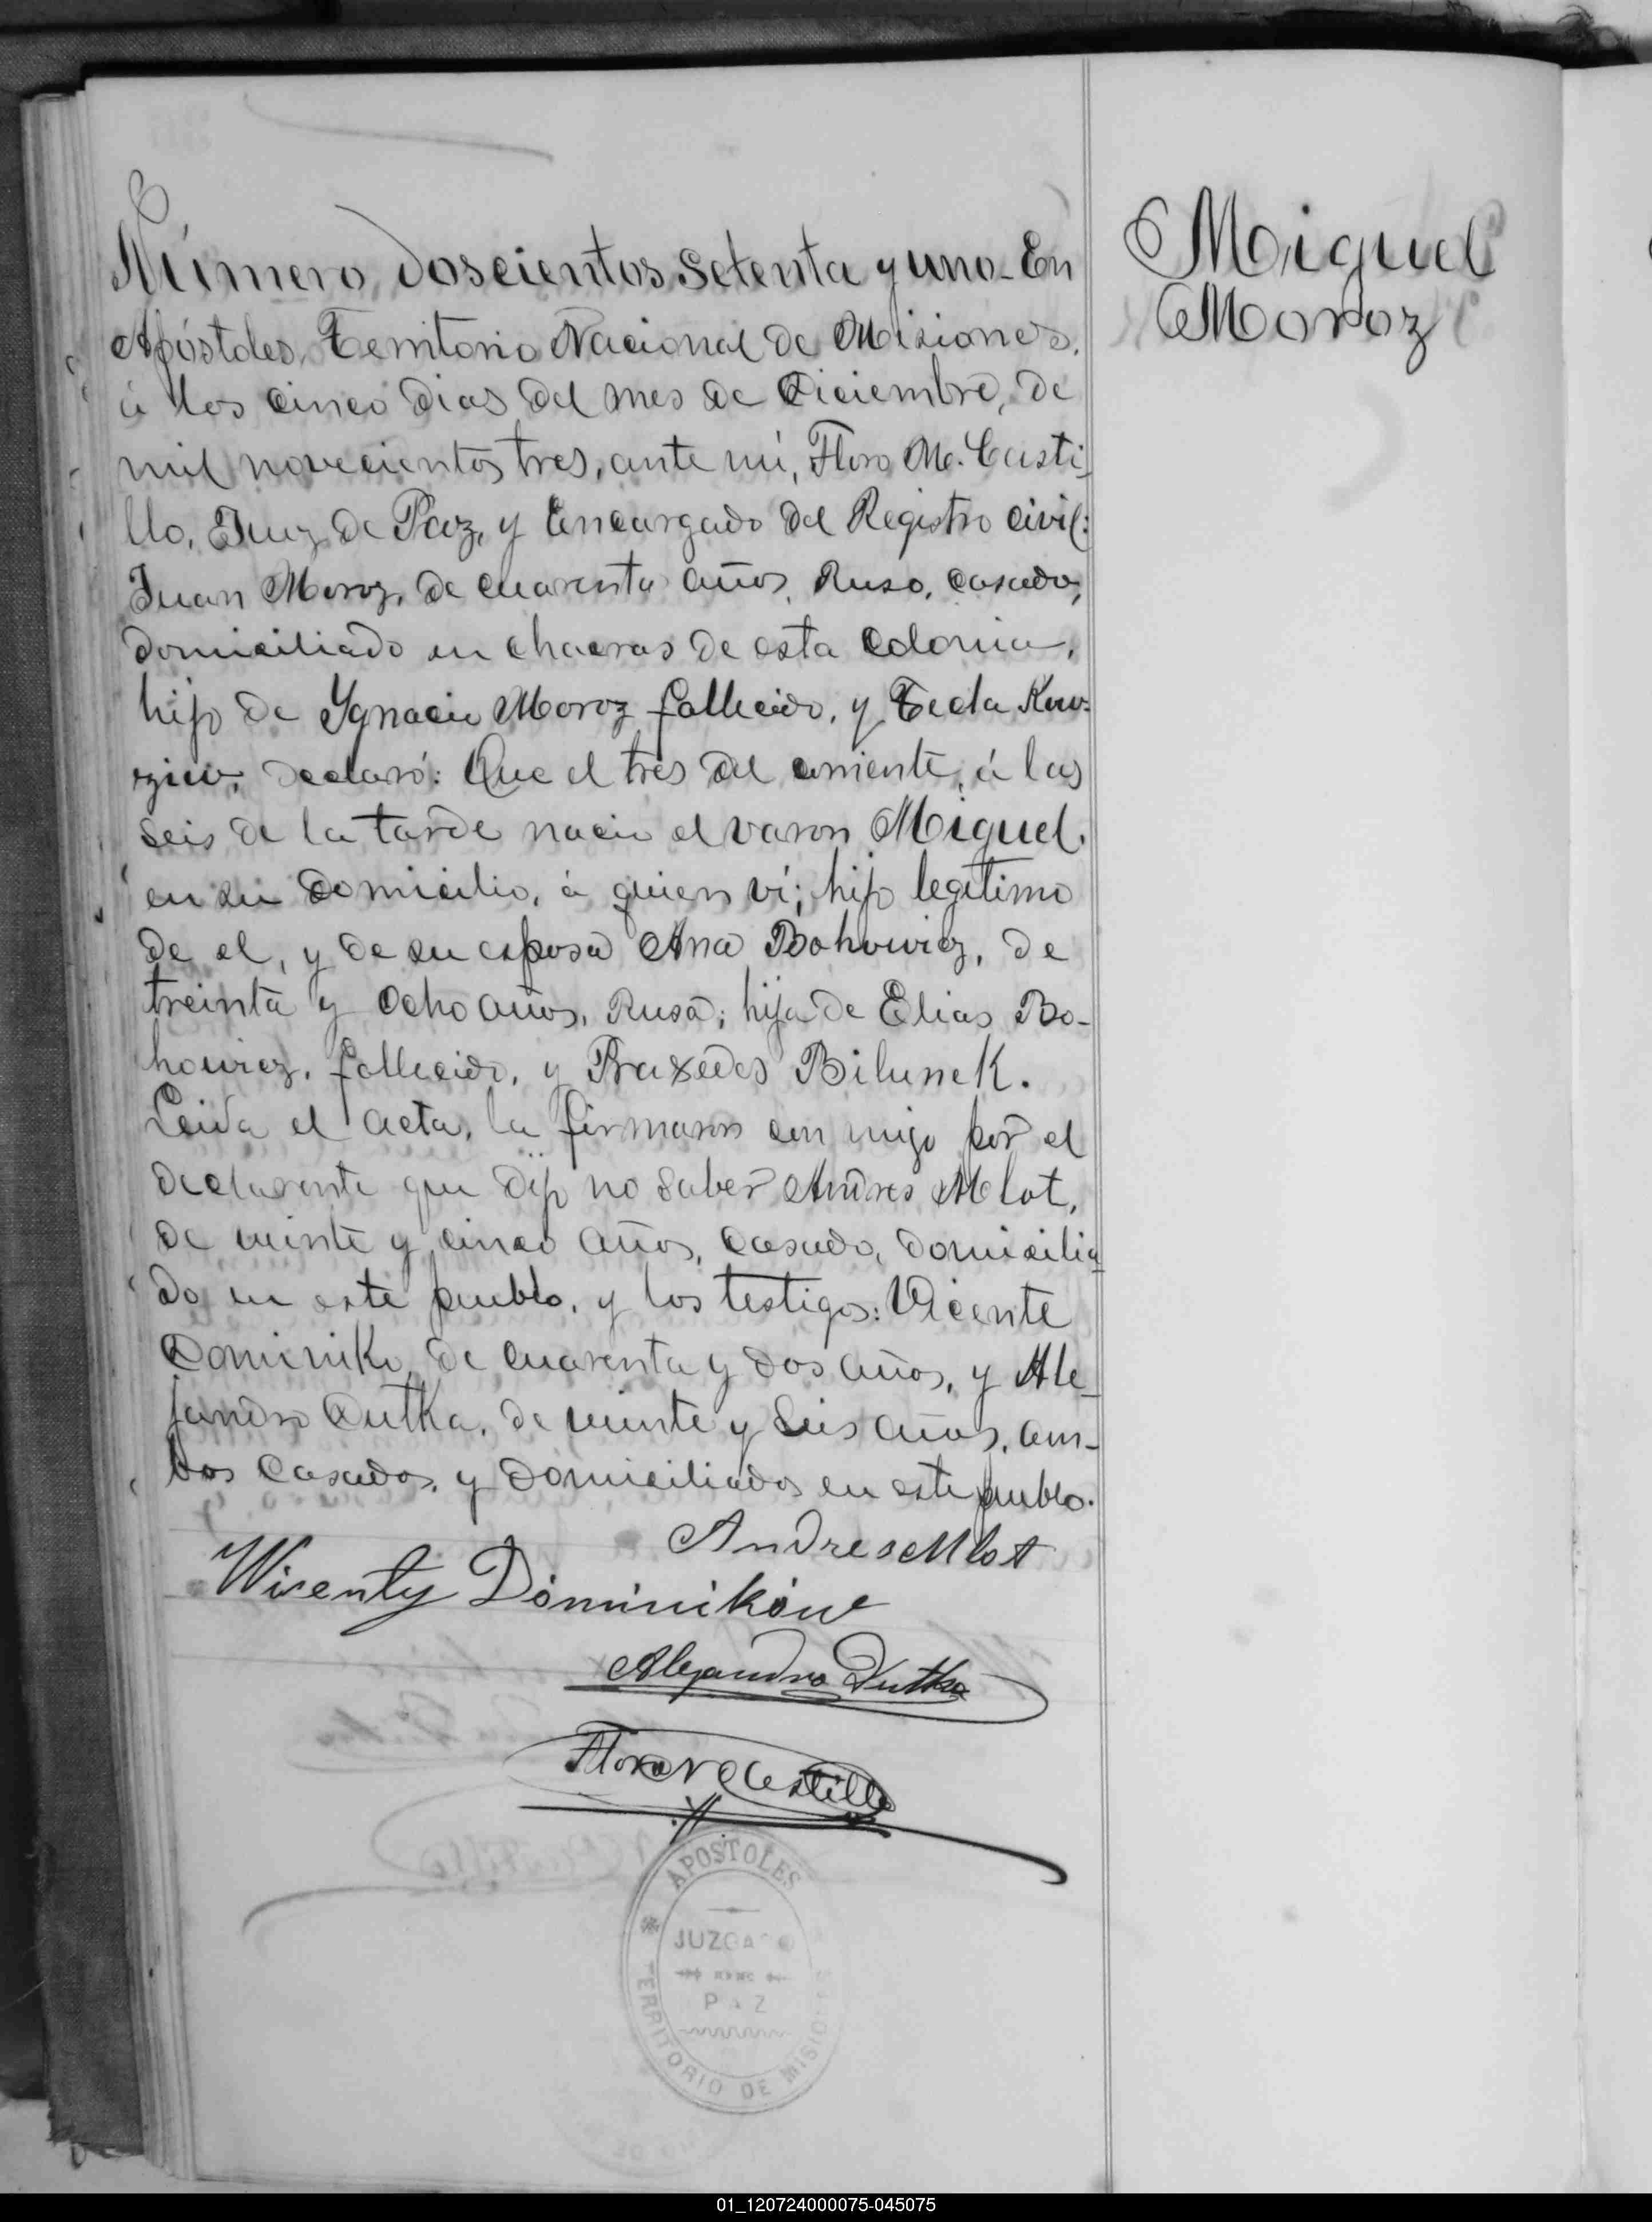 Número doscientos setenta y uno - En
Apóstoles, Territorio Nacional de Misiones,
á los cinco dias del mes de Diciembre, de
mil novecientos tres, ante mi, Floro M. Casti-
llo, Juez de Paz, y Encargado del Registro Civil:
Juan Moroz, de cuarenta años, Ruso, casado,
domiciliado en chacras de esta Colonia,
hijo de Ygnacio Moroz fallecido, y Tecla
declaró: Que el tres del corriente, á las
seis de la tarde nacio el varon Miguel,
en su domicilio, á quien ví; hijo legítimo
de el, y de su esposa Ana Bohowicz, de
treinta y ocho años, Rusa; hija de Elias Bo-
howicz, fallecido, y Praxedes Bilunek.
Leida el acta, la firmaron con migo por el
declarante que dijo no saber Andres Mlot,
de veinte y cinco años, casado, domicilia-
do en este pueblo, y los testigos: Vicente
Dominiko, de cuarenta y dos años, y Ale-
jandro Dutka, de veinte y seis años, am-
bos casados, y domiciliados en este pueblo.
Andres Mlot
Wicenty Dominików
Alejandro Dutka
Floro M Castillo
APOSTOLES
JUZGADO
PAZ
TERRITORIO DE MISIO
Miguel
Moroz
01_120724000075-045075